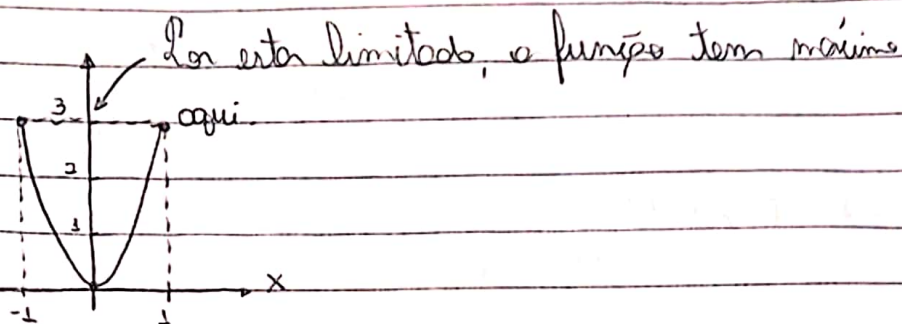 Por estar limitado, a função tem máximo
aqui.
3
2
1
X
-1
1